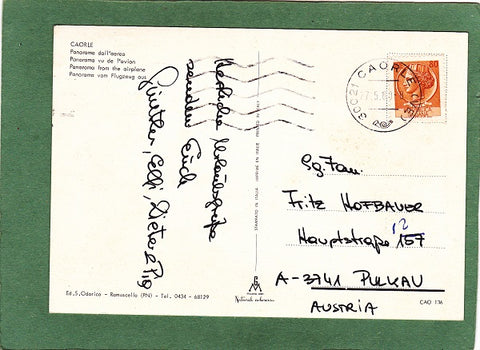 CAORLE
Panorama dall'aereo
Panorama vu de l'avion
Panorama from the airplane
Panorama vom Flugzeug aus
Herzliche Urlaubsgrüße
senden Euch
Günther, Elli, Dieter &
30021 CAORLE (VE)
Sg. Fam.
Fritz HOFBAUER
Hauptstraße 157
12
A-3741 PULKAU
AUSTRIA
Ed. S. Odorico - Ramuscello (PN) - Tel. 0434 - 68129
CAO 136